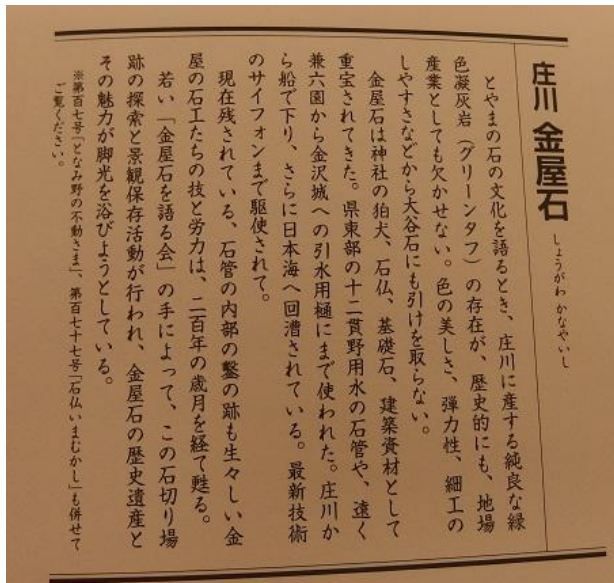 庄川 金屋石
しょうがわ かなやいし
とやまの石の文化を語るとき、庄川に産する純良な緑
色凝灰岩（グリーンタフ）の存在が、歴史的にも、地場
産業としても欠かせない。色の美しさ、弾力性、細工の
しやすさなどから大谷石にも引けを取らない。
金屋石は神社の狛犬、石仏、基礎石、建築資材として
重宝されてきた。県東部の十二貫野用水の石管や、遠く
兼六園から金沢城への引水用樋にまで使われた。庄川か
ら船で下り、さらに日本海へ回漕されている。最新技術
のサイフォンまで駆使されて。
現在残されている、石管の内部の鑿の跡も生々しい金
屋の石工たちの技と労力は、二百年の歳月を経て甦る。
若い「金屋石を語る会」の手によって、この石切り場
跡の探索と景観保存活動が行われ、金屋石の歴史遺産と
その魅力が脚光を浴びようとしている。
※第百七号「となみ野の不動さま」、第百七十七号「石仏いまむかし」も併せて
ご覧ください。